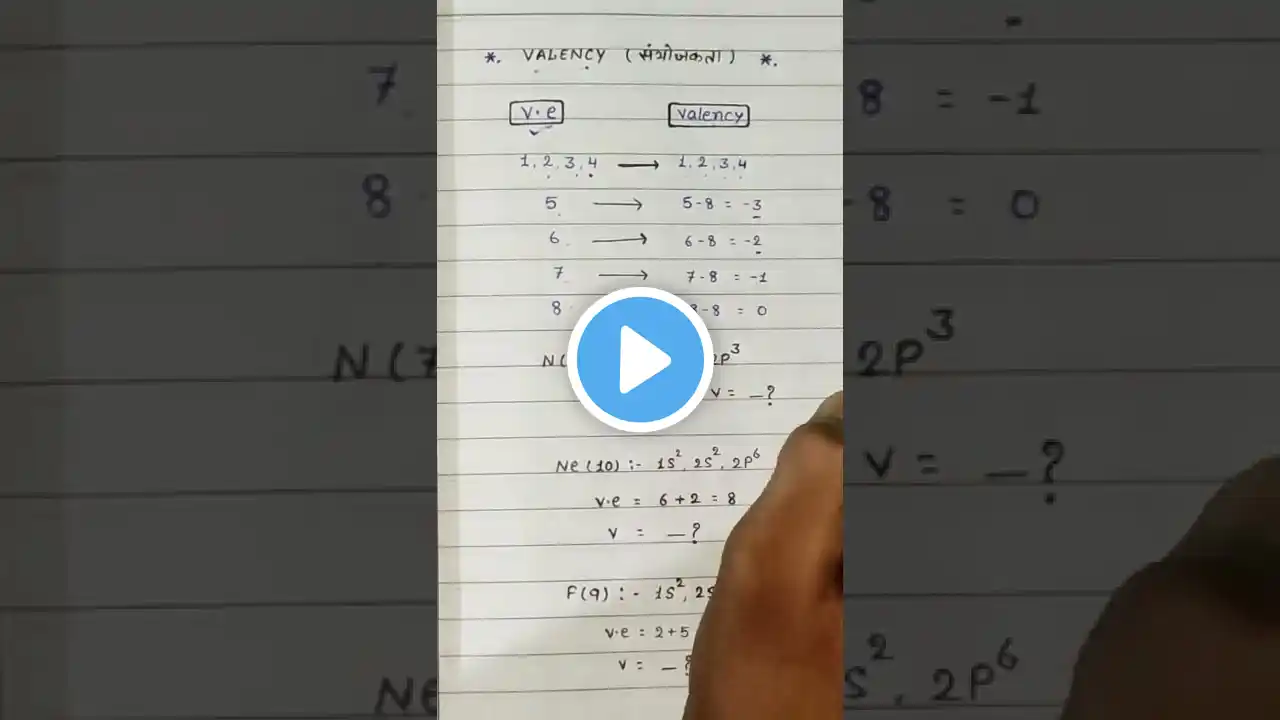 *. VALENCY (संयोजकता) *.
V.e valency
1, 2, 3, 4 ⟶ 1, 2, 3, 4
5 ⟶ 5-8 = -3
6 ⟶ 6-8 = -2
7 ⟶ 7-8 = -1
8 -8 = 0
N( 2P³
V = —?
Ne (10) :- 1S², 2S², 2P⁶
V.e = 6 + 2 = 8
V = —?
F(9) :- 1S², 2S
V.e = 2 + 5
V = —?
7
8
8 = -1
-8 = 0
N(7
2P³
V = —?
Ne
S², 2P⁶